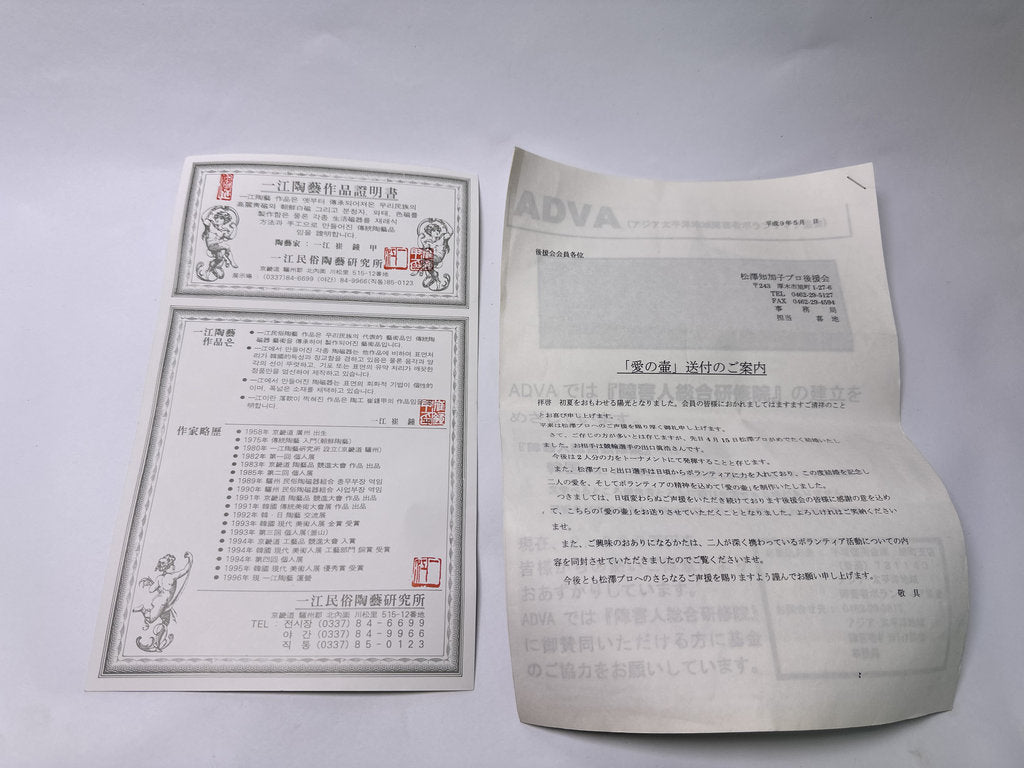 一江陶藝作品證明書
一江陶藝 作品은 옛부터 傳承되어져온 우리民族의
高麗靑磁와 朝鮮白磁 그리고 분청자, 와태, 色磁를
製作함은 물론 각종 生活磁器를 재래식
方法과 手工으로 만들어진 傳統陶藝品
임을 證明합니다
陶藝家 : 一江 崔 鐘 甲
一江民俗陶藝硏究所
京畿道 驪州郡 北內面 川松里 515-12番地
展示場 : (0337)84-6699 (야간) 84-9966(직통)85-0123
一江陶藝
作品은
● 一江民俗陶藝 作品은 우리民族의 代表的 藝術品인 傳統陶
磁器 藝術을 傳承하여 製作되어진 藝術品입니다.
● 一江에서 만들어진 각종 陶磁器는 他作品에 비하여 표면처
리가 韓國的특성과 정교함을 겸하고 있음은 물론 음각과 양
각의 선이 뚜렷하고, 기포 또는 표면의 유약 처리가 깨끗한
정품만을 엄선하여 제작하고 있습니다.
● 一江에서 만들어진 陶磁器는 표면의 회화적 기법이 個性的
이며, 폭넓은 소재를 제택하고 있습니다.
● 一江이란 落款이 찍혀진 作品은 陶工 崔鐘甲의 作品임을
明합니다.
一江 崔 鐘
作家略歷
● 1958年 京畿道 廣州 出生
● 1975年 傳統陶藝 入門(朝鮮陶藝)
● 1980年 一江陶藝硏究所 設立(京畿道 驪州)
● 1982年 第一回 個人展
● 1983年 京畿道 陶藝品 競進大會 作品 出品
● 1985年 第二回 個人展
● 1989年 驪州 民俗陶磁器組合 총무부장 역임
● 1990年 驪州 民俗陶磁器組合 사업부장 역임
● 1991年 京畿道 陶藝品 競進大會 作品 出品
● 1991年 韓國 傳統美術大會展 作品 出品
● 1992年 韓·日 陶藝 交流展
● 1993年 韓國 現代 美術人展 金賞 受賞
● 1993年 第三回 個人展(釜山)
● 1994年 京畿道 工藝品 競進大會 入賞
● 1994年 韓國 現代 美術人展 工藝部門 銅賞 受賞
● 1994年 第四回 個人展
● 1995年 韓國 現代 美術人展 優秀賞 受賞
● 1996年 現 一江陶藝 運營
一江民俗陶藝硏究所
京畿道 驪州郡 北內面 川松里 515-12番地
TEL : 전시장 (0337) 84-6699
야 간 (0337) 84-9966
직 통 (0337) 85-0123
ADVA
平成9年5月 日
後援会会員各位
松澤知加子プロ後援会
〒243 厚木市旭町1-27-6
TEL 0462-29-5127
FAX 0462-29-4594
事 務 局
担当 喜地
「愛の壷」送付のご案内
拝啓 初夏をおもわせる陽光となりました。会員の皆様におかれましてはますますご清祥のこと
とお喜び申し上げます。
平素は松澤プロへのご声援を賜り深く御礼申し上げます。
さて、ご存じの方が多いとは存じますが、先日4月15日松澤プロがめでたく結婚いたし
ました。お相手は競輪選手の出口眞浩さんです。
今後は2人分の力をトーナメントにて発揮することと存じます。
また、松澤プロと出口選手は日頃からボランティアに力を入れており、この度結婚を記念し
二人の愛を、そしてボランティアの精神を込めて「愛の壷」を制作いたしました。
つきましては、日頃変わらぬご声援をいただき続けております後援会の皆様に感謝の意を込め
て、こちらの「愛の壷」をお送りさせていただくこととなりました。よろしければご笑納ください
ませ。
また、ご興味のおありになるかたは、二人が深く携わっているボランティア活動についての内
容を同封させていただきましたのでご覧くださいませ。
今後とも松澤プロへのさらなるご声援を賜りますよう謹んでお願い申し上げます。
敬 具
ADVA では『障害人総合研修院』の建立を
めざ
現在、
皆様か
おあずかりしています。
ADVA では『障害人総合研修院』
に御賛同いただける方に基金
のご協力をお願いしています。